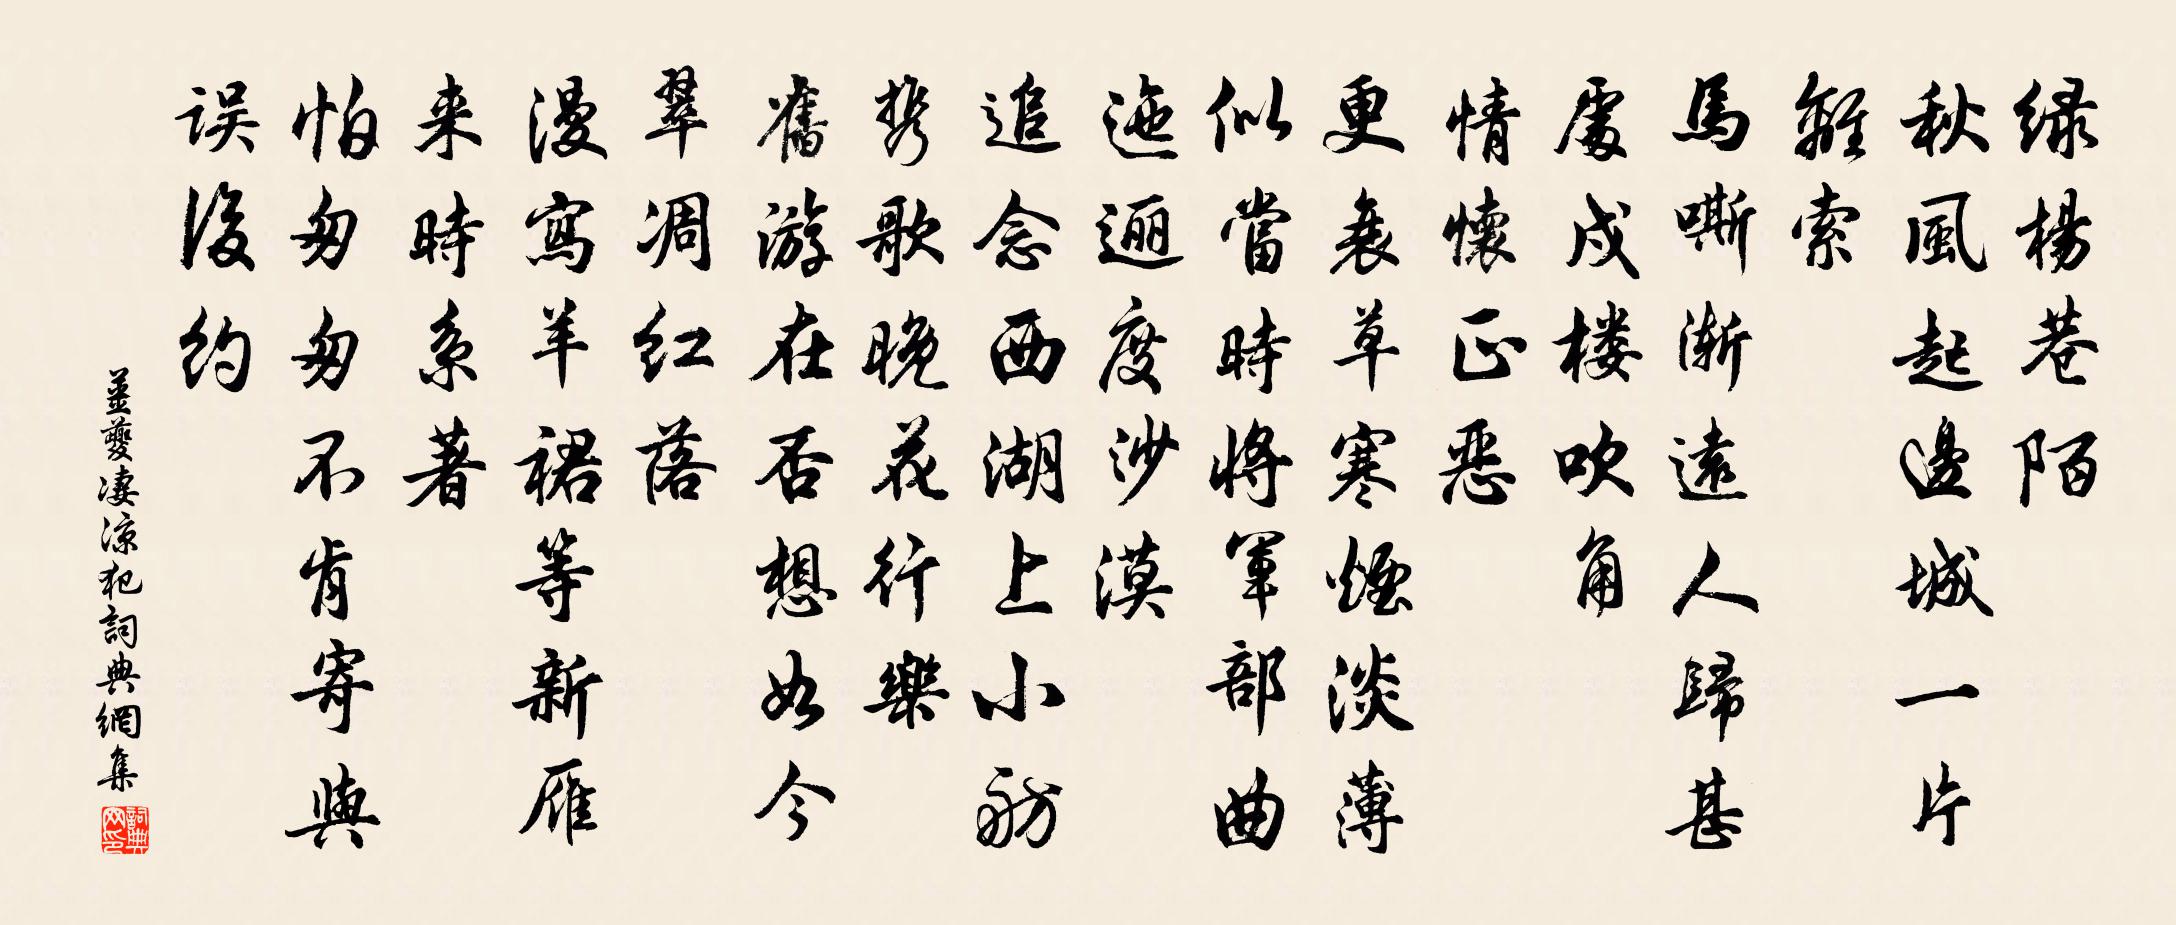 绿楊巷陌
秋風起邊城一片
離索
馬嘶渐遠人歸甚
處戍楼吹角
情懷正恶
更衰草寒煙淡薄
似當時將軍部曲
迤逦度沙漠
追念西湖上小舫
携歌晚花行樂
舊游在否想如今
翠凋红落
漫寫羊裙等新雁
来時系著
怕匆匆不肯寄與
误後约
姜夔凄涼犯詞典網集
詞典网印